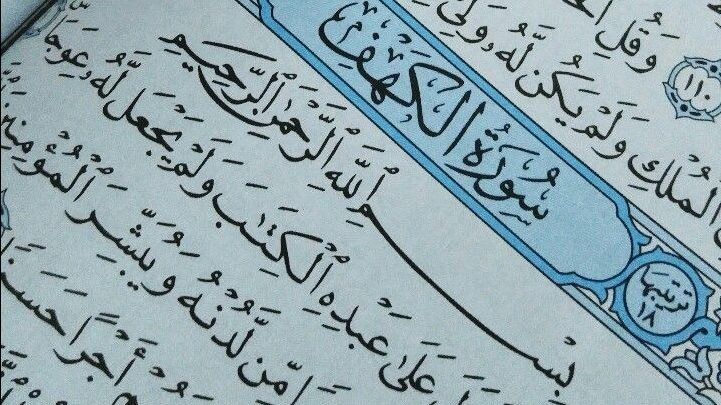 ١١٠ وَقُلِ
الْمُلْكِ وَلَمْ يَكُن لَّهُۥ وَلِيّ
سُورَةُ الْكَهْفِ
ترتيبها ١٨
بِسْمِ ٱللَّهِ ٱلرَّحْمَٰنِ ٱلرَّحِيمِ
عَلَىٰ عَبْدِهِ ٱلْكِتَٰبَ وَلَمْ يَجْعَل لَّهُۥ عِوَجَا
مِّن لَّدُنْهُ وَيُبَشِّرَ ٱلْمُؤْمِنِينَ
أَجْرًا حَسَنً